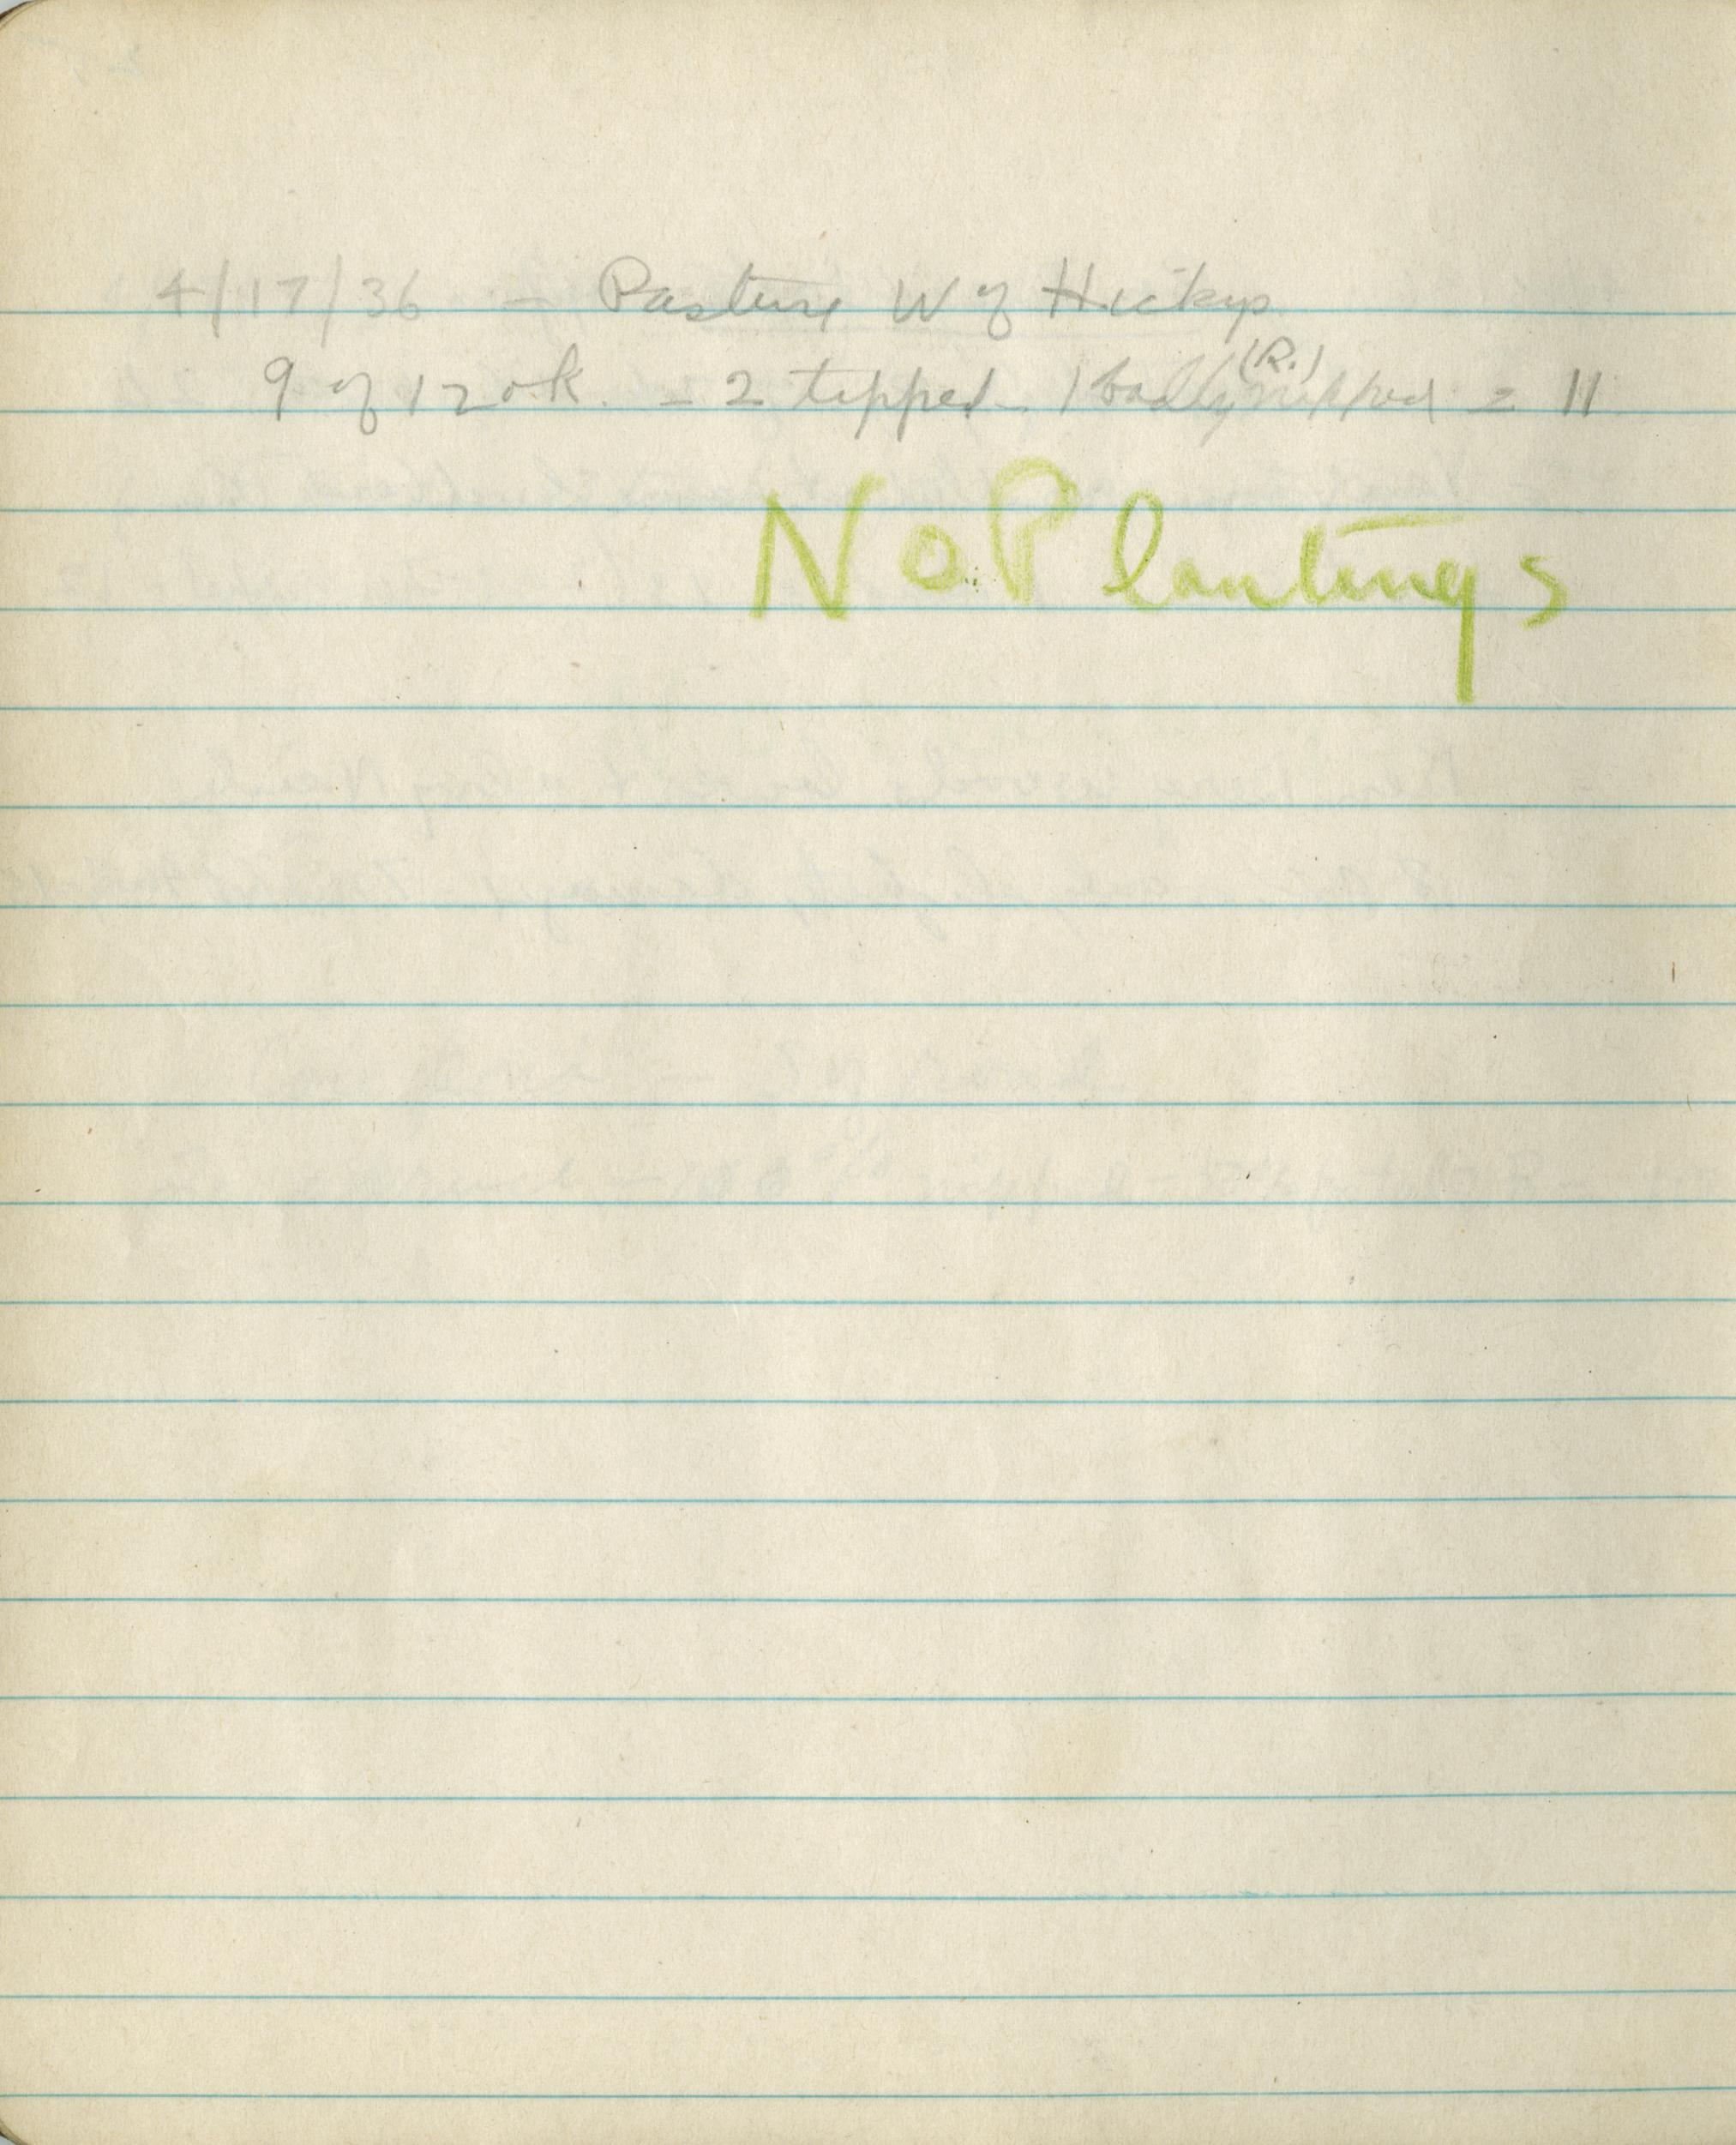 4/17/36 - Pasture W of Hickeys
(R.)
9 of 12 ok. - 2 tipped - 1 badly nipped = 11
No Plantings